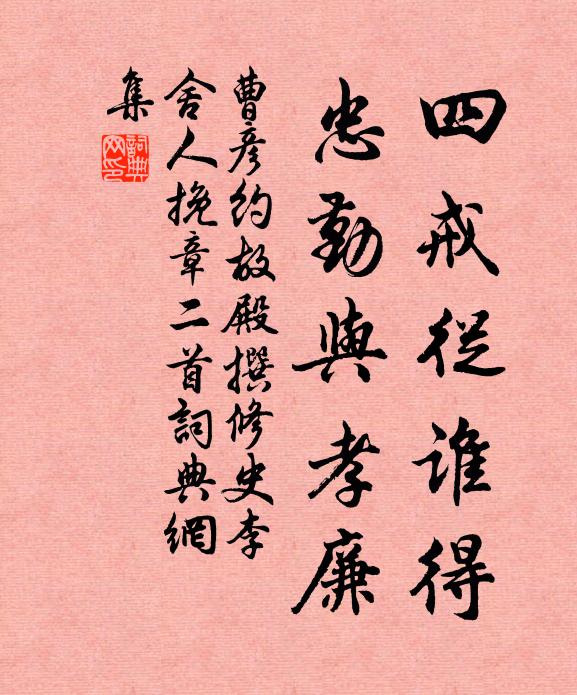 四戒從誰得
忠勤與孝廉
曹彦約故殿撰修史李
舍人挽章二首詞典網
集
詞典網印